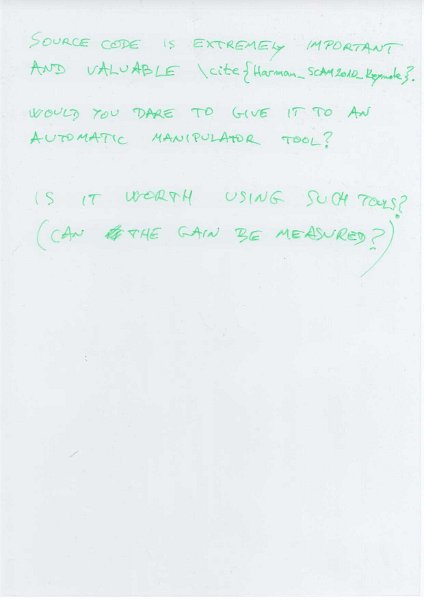 SOURCE CODE IS EXTREMELY IMPORTANT
AND VALUABLE \cite{Harman_SCAM2010_Keynote}.
WOULD YOU DARE TO GIVE IT TO AN
AUTOMATIC MANIPULATOR TOOL?
IS IT WORTH USING SUCH TOOLS?
(CAN THE GAIN BE MEASURED?)